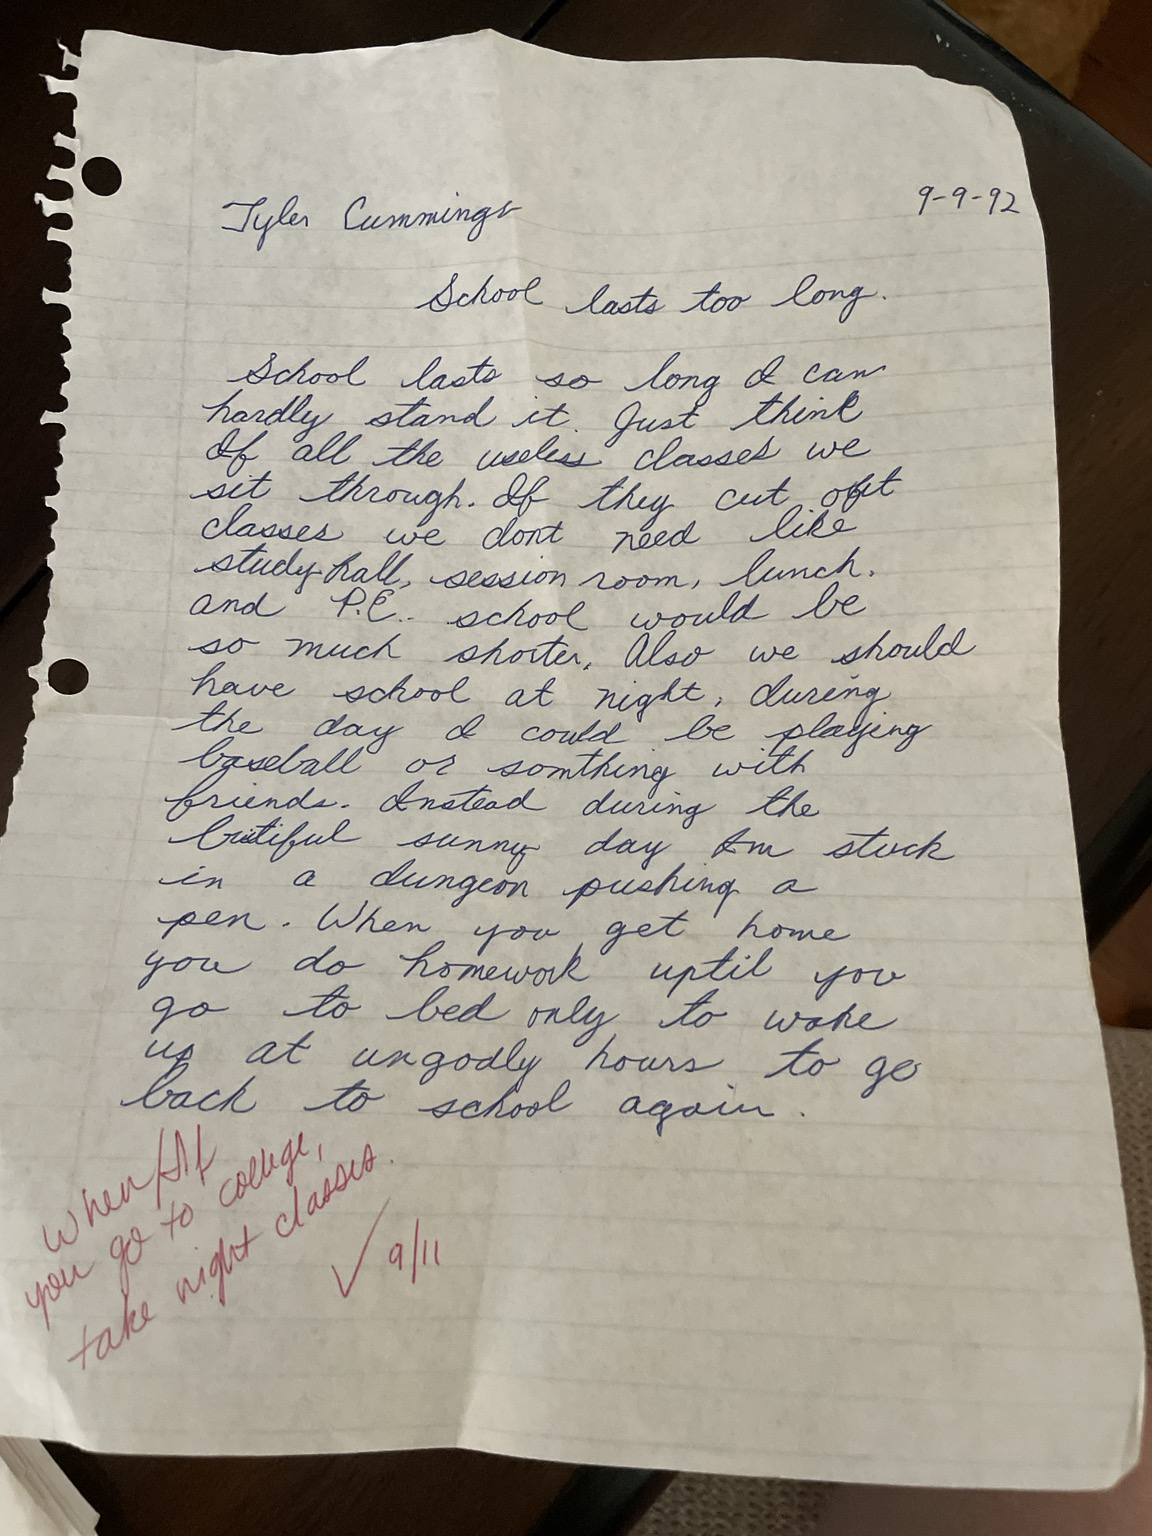 Tyler Cummings
9-9-92
School lasts too long.
School lasts so long I can
hardly stand it. Just think
Of all the useless classes we
sit through. If they cut out
classes we dont need like
study hall, session room, lunch.
and P.E.. school would be
so much shorter, Also we should
have school at night, during
the day I could be playing
baseball or somthing with
friends. Instead during the
butiful sunny day Im stuck
in a dungeon pushing a
pen. When you get home
you do homework uptil you
go to bed only to wake
up at ungodly hours to go
back to school again.
When/If
you go to college,
take night classes.
✓ 9/11